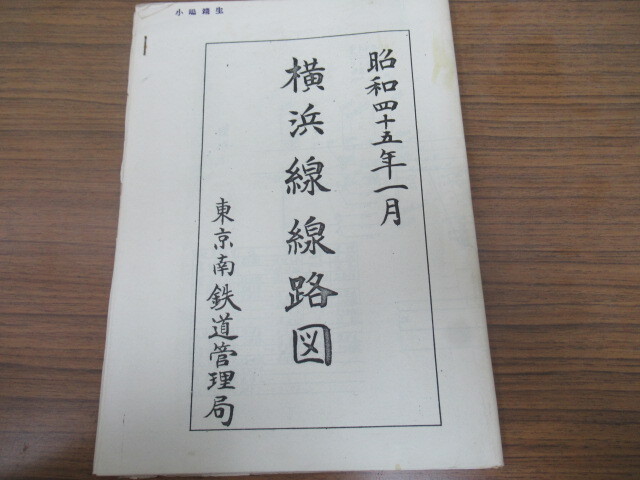 昭和四十五年一月
横浜線線路図
東京南鉄道管理局